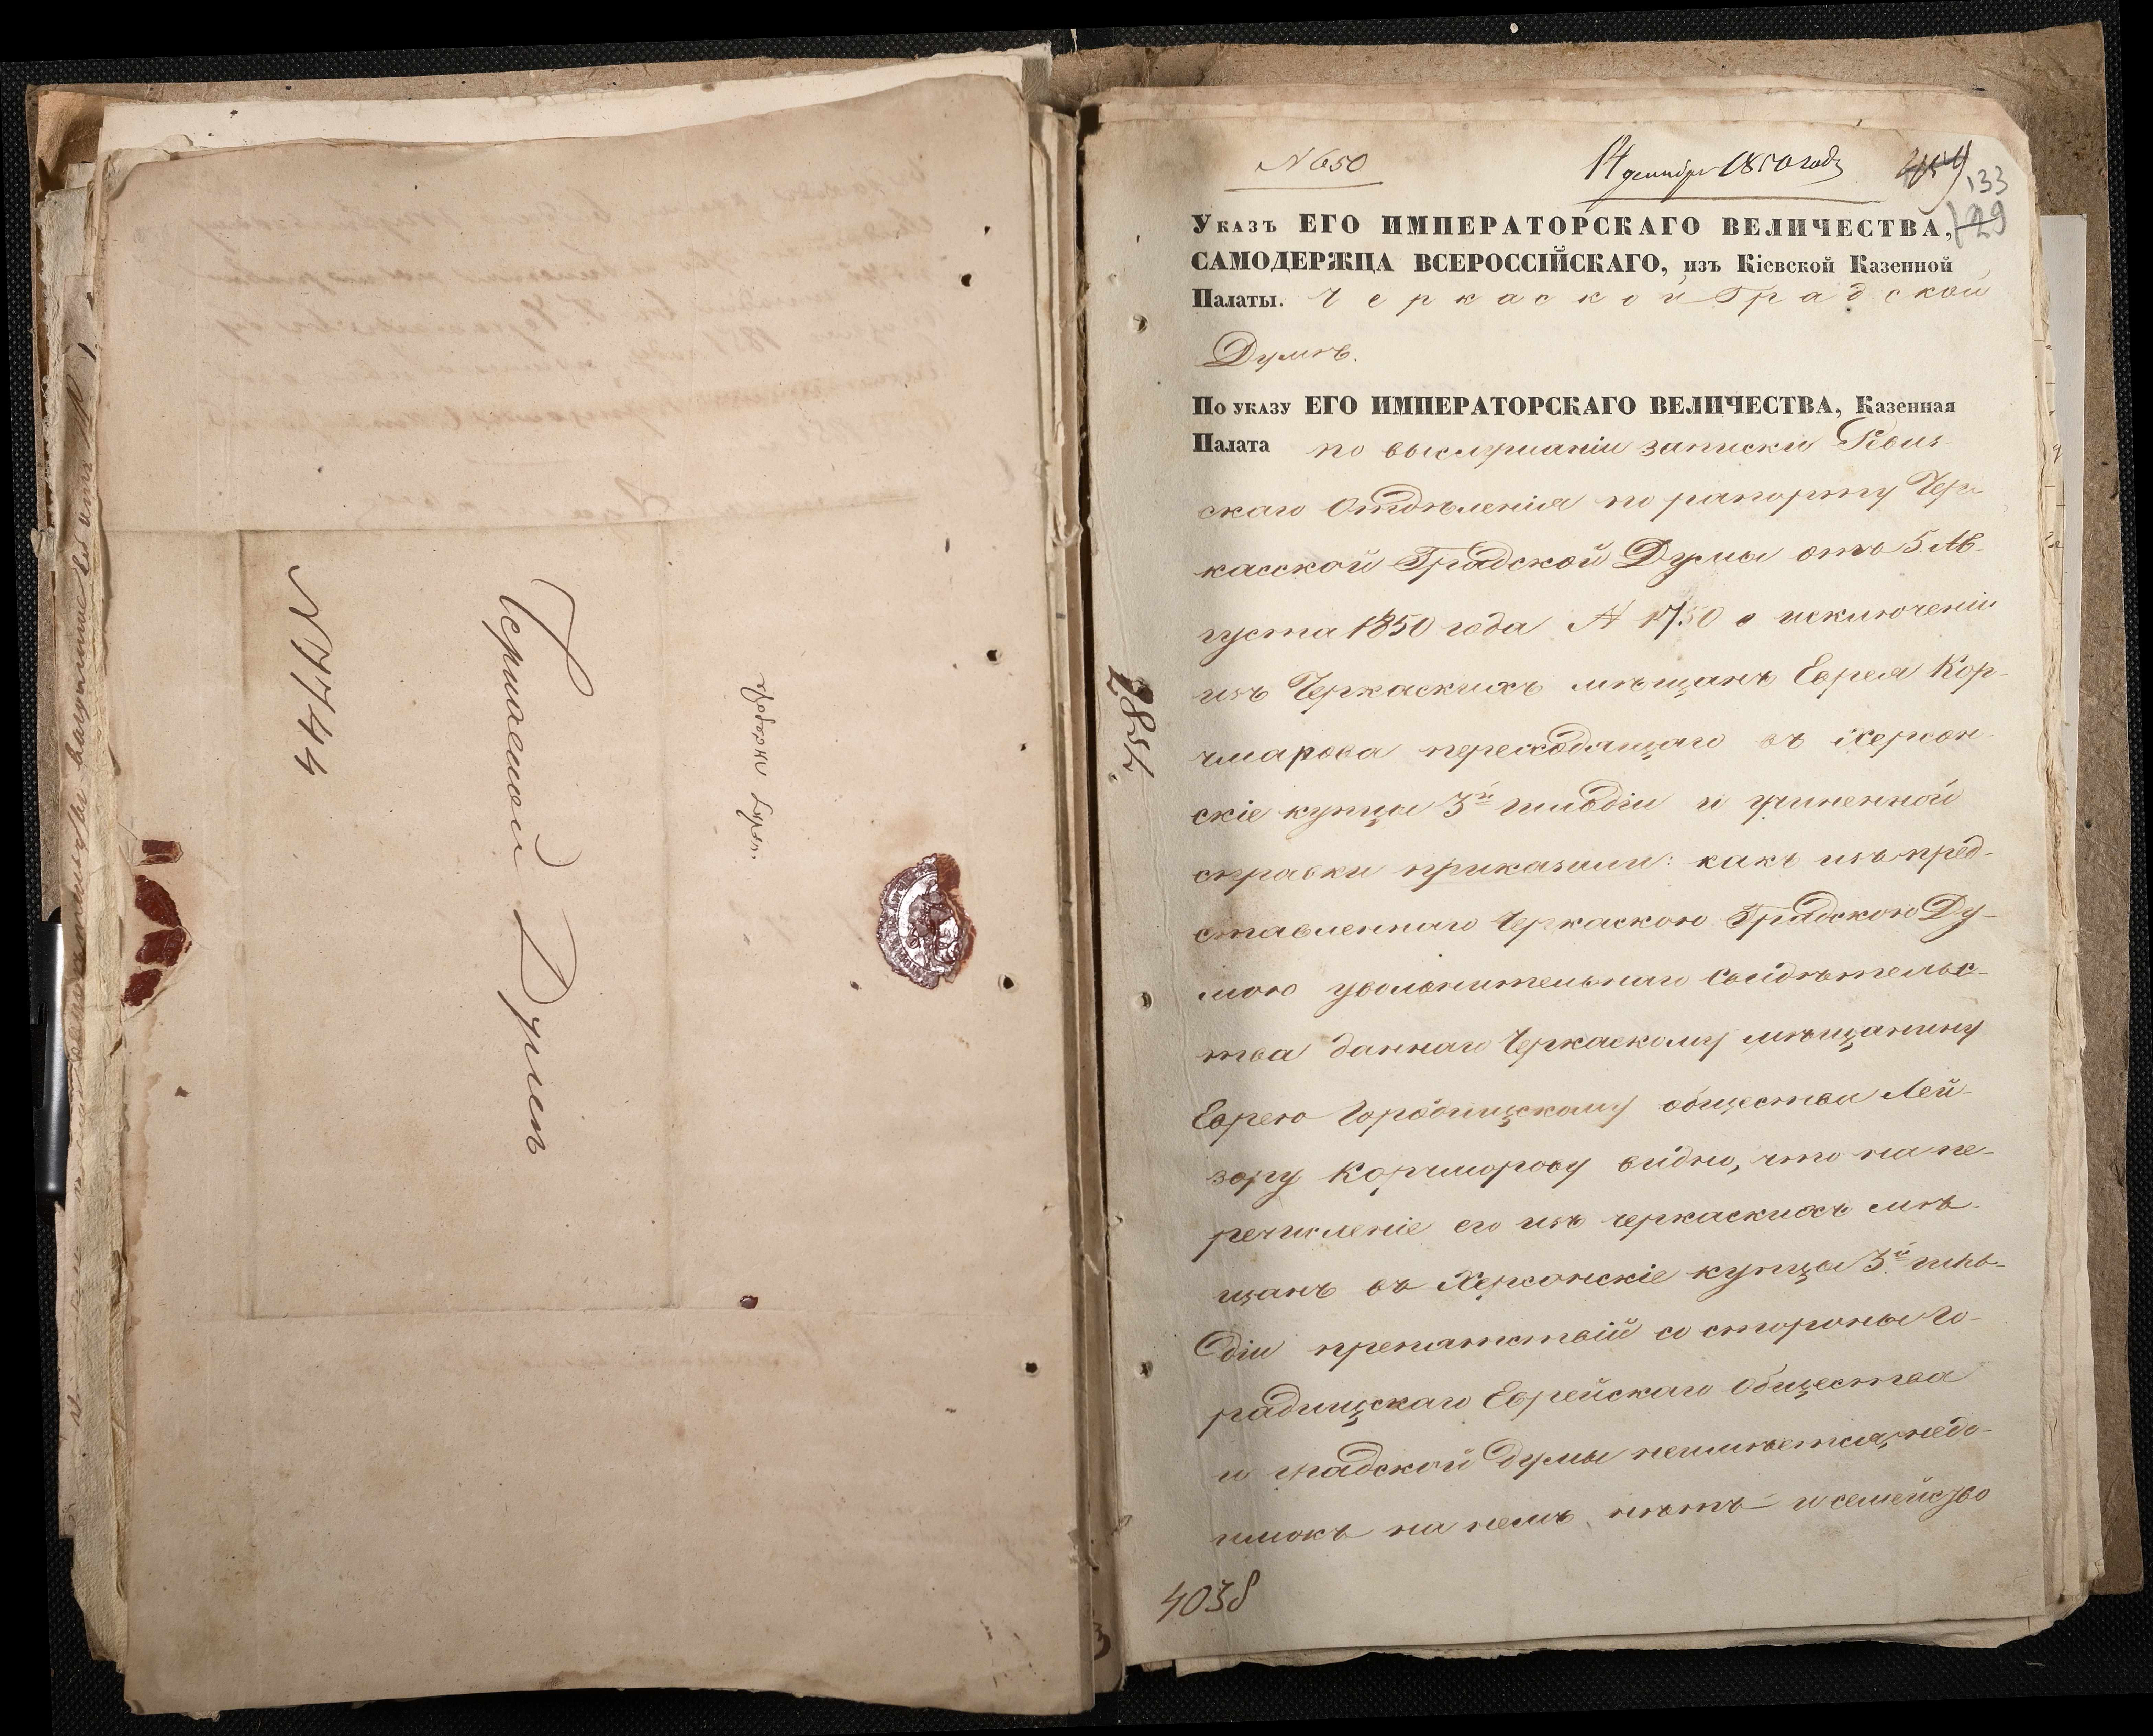 N 4744
Черкаской Думѣ
2857.
N 650
14 декабря 1850 года
133
129
Указъ ЕГО ИМПЕРАТОРСКАГО ВЕЛИЧЕСТВА,
САМОДЕРЖЦА ВСЕРОССІЙСКАГО, изъ Кіевской Казенной
Палаты. Черкаской Градской
Думѣ.
По указу ЕГО ИМПЕРАТОРСКАГО ВЕЛИЧЕСТВА, Казенная
Палата по выслушаніи записки Ревиз-
скаго Отдѣленія по рапорту Чер-
касской Градской Думы отъ 5 Ав-
густа 1850 года N 1750 о исключеніи
изъ Черкаскихъ мѣщанъ Еврея Кор-
чмарова переходящаго въ Херсон-
скіе купцы 3й гильдіи и учиненной
справки приказали: какъ изъ пред-
ставленнаго Черкаскою Градскою Ду-
мою уволнительнаго свидѣтельс-
тва даннаго Черкаскому мѣщанину
Еврею Городищскому общества Лей-
зору Корчморову видно, что на пе-
речисленіе его изъ черкаскихъ мѣ-
щанъ въ Херсонскіе купцы 3й гиль-
діи препятствій со стороны Го-
радищскаго Еврейскаго Общества
и градской Думы неимѣется, недо-
имокъ на немъ нѣтъ и семейство
4038